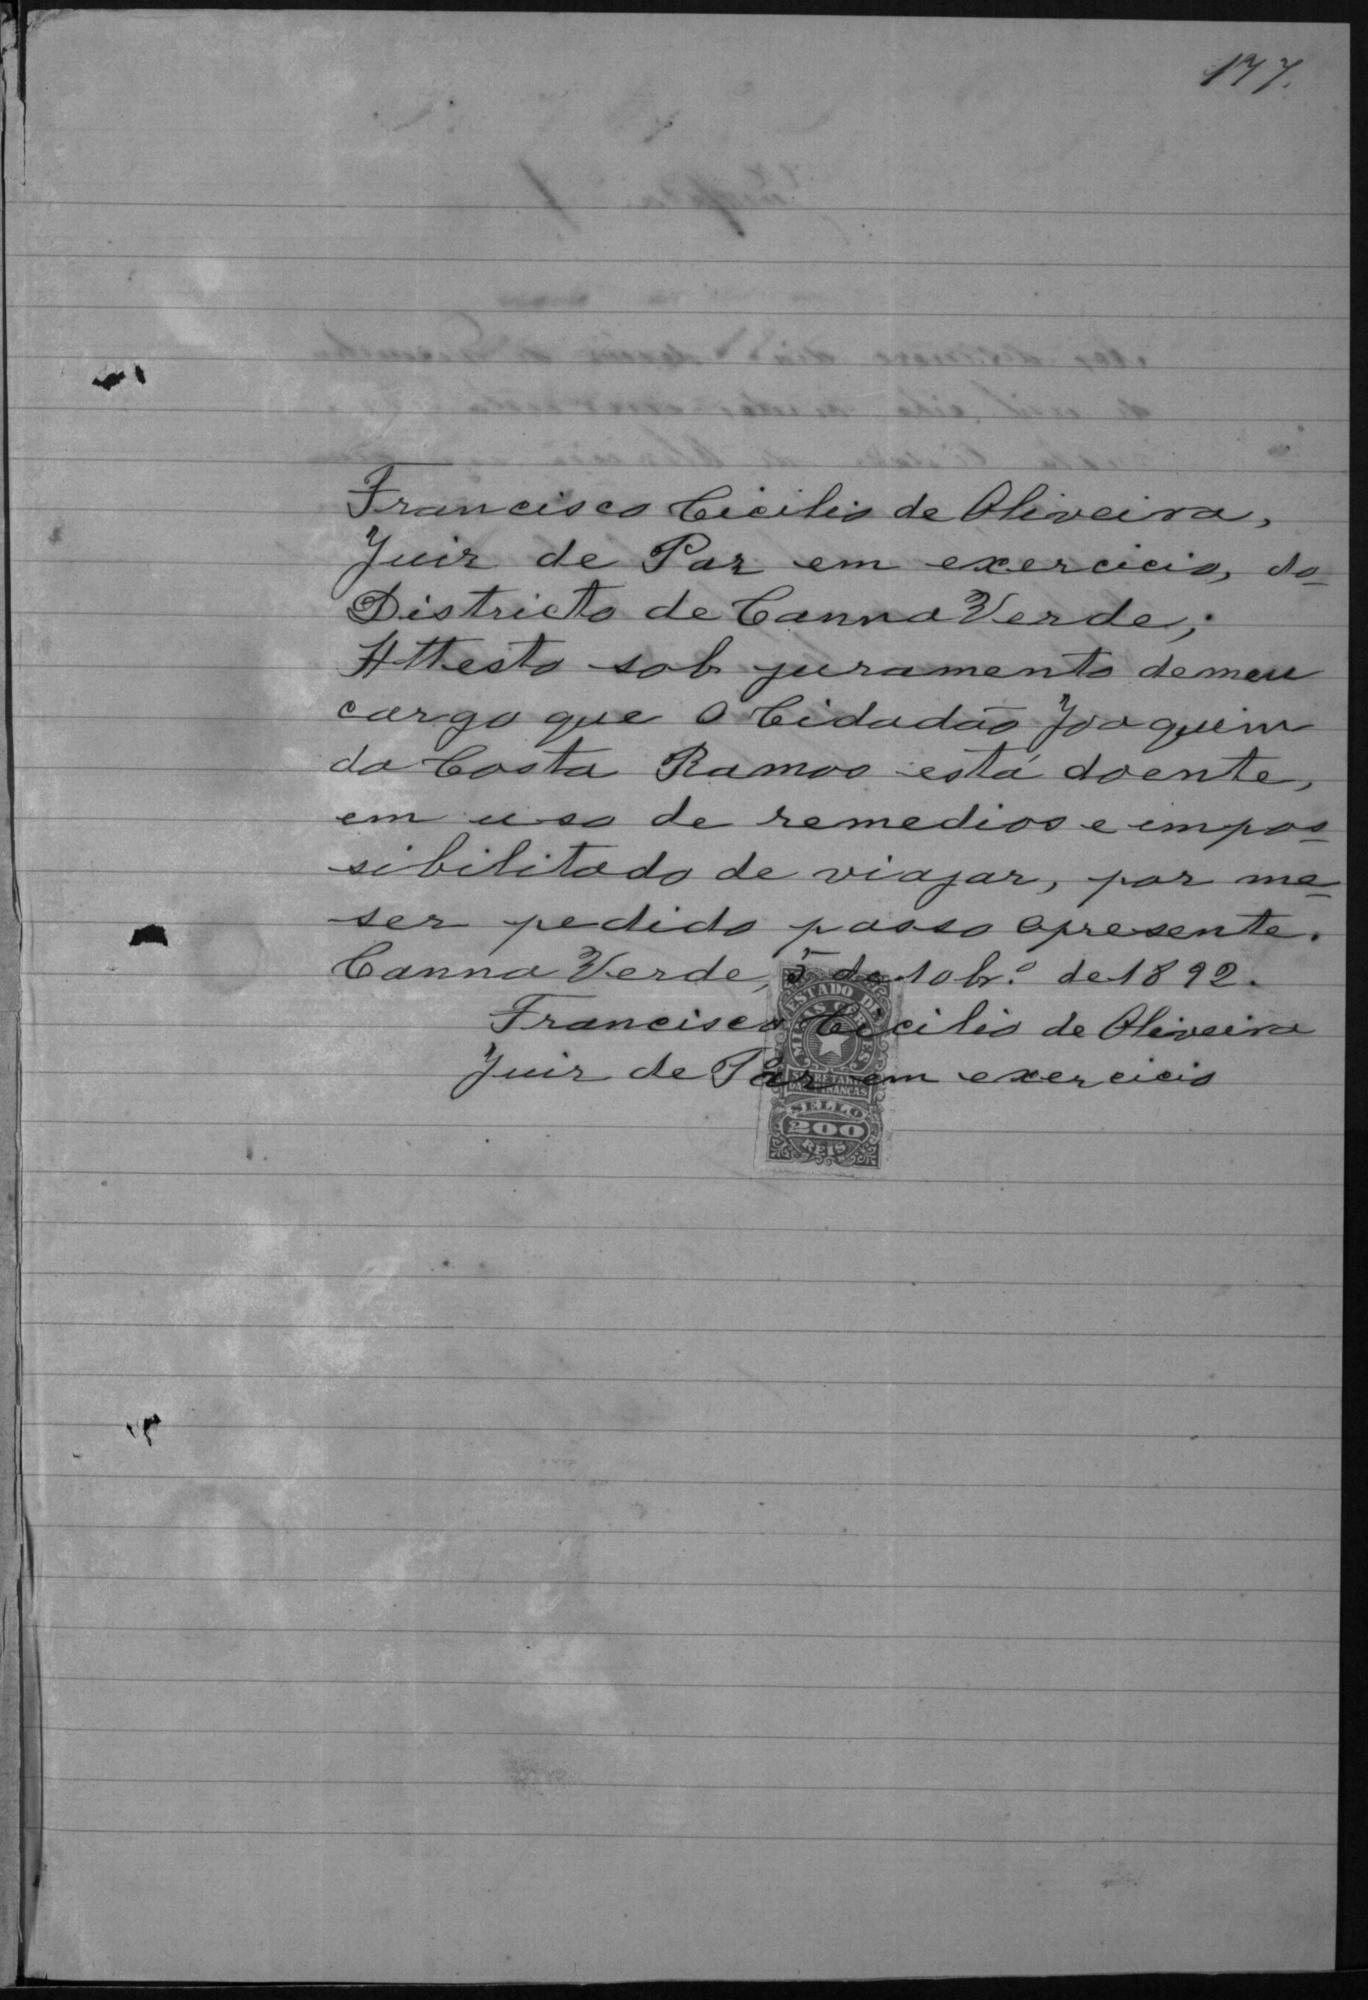 177.
Francisco Cicilio de Oliveira,
Juiz de Paz em exercicio, do
Districto de Canna Verde;
Attesto sob juramento de meu
cargo que o Cidadão Joaquim
da Costa Ramos está doente,
em uso de remedios e impos=
sibilitado de viajar, por me=
ser pedido passo apresente.
Canna Verde, 5 de 10br.º de 1892.
Francisco Cicilio de Oliveira
Juiz de Paz em exercicio
ESTADO DE
MINAS GERAES
SECRETARIA
DAS FINANCAS
SELLO
200
REIS